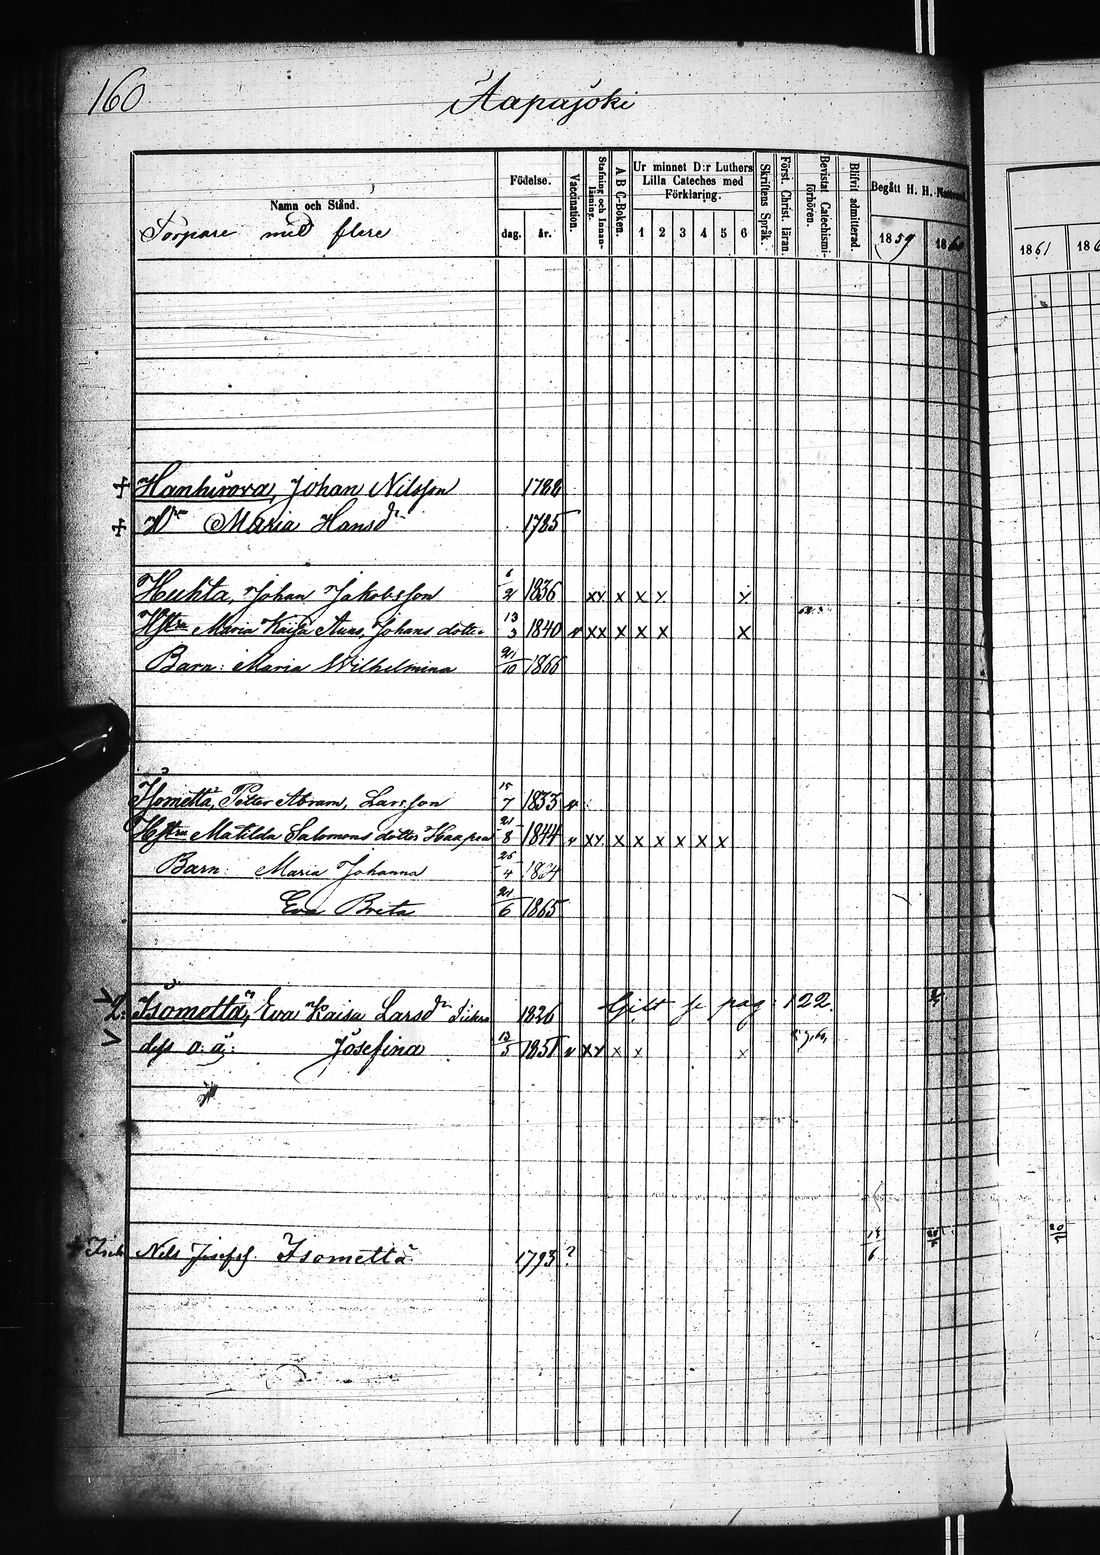 160
Aapajoki
Namn och Stånd.
Torpare med flere
Födelse.
dag. år.
Vaccination.
Stafning och Innan-läsning.
A B C-Boken.
Ur minnet D:r Luthers Lilla Cateches med Förklaring.
1 2 3 4 5 6
Skriftens Språk.
Först. Christ. läran.
Bevistat Catechismi-förhören.
Blifvit admitterad.
Begått H. H.
1859 1860
1861
Hanhirova, Johan Nilsson 178
Maria Hansdr 1785
Huhta, Johan Jakobsson 6/2 1836 x x x x x x
Hstru Maria Kaisa Johans dotter 13/3 1840 v x x x x x x
Barn: Maria Wilhelmina 21/10 1866
Isometta, Petter Abram, Larsson 15/7 1833 v
Hstru Matilda Salomons dotter 21/8 1844 v x x x x x x x x
Barn: Maria Johanna 25/4 1864
Eva Breta 21/6 1865
Isometta, Eva Kaisa Larsdr 1826 Gift se pag: 122.
dess o. ä: Josefina 12/5 1851 v x x x x x
Nels Josefss. Isometta 1793 ?